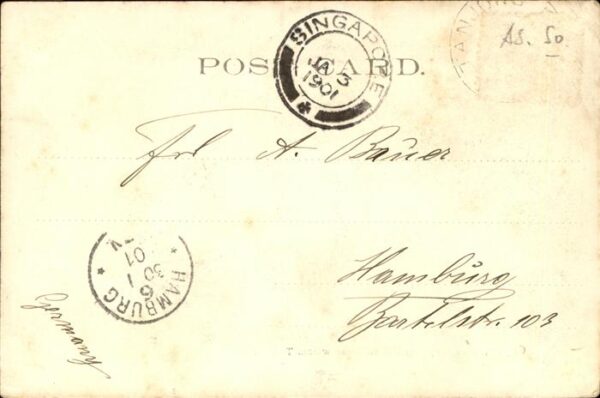 AS. So
SINGAPORE
JA 3
1901
POST CARD.
Frl A. Bauer
HAMBURG
6 1
30 01
Hamburg
Bartelstr. 103
Germany